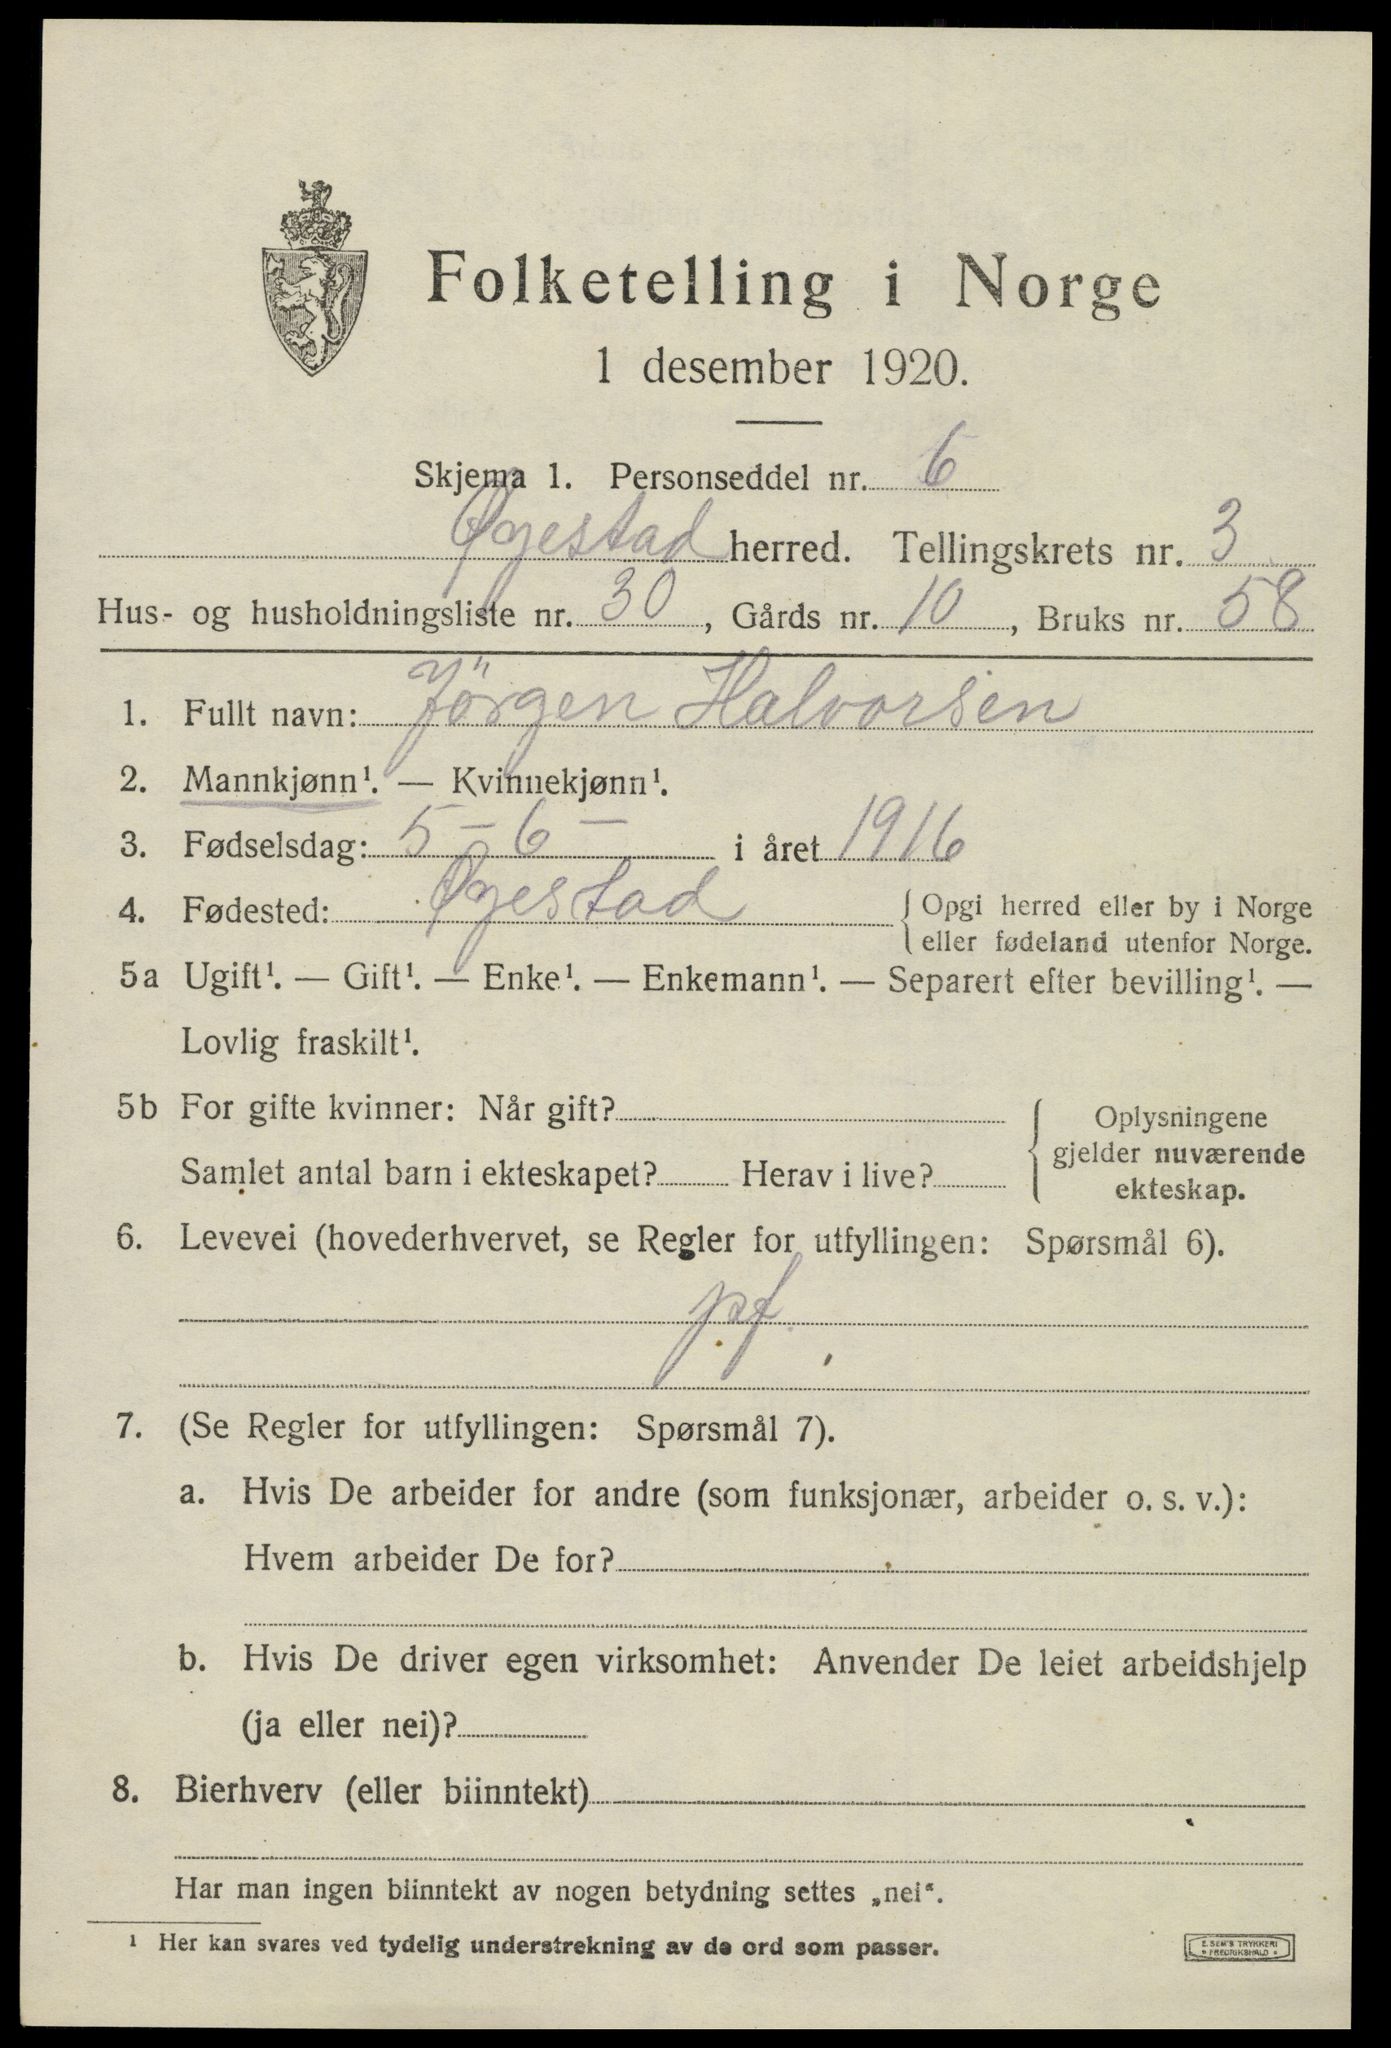 Folketelling i Norge
1 desember 1920.
Skjema 1. Personseddel nr. 6
Øyestad herred. Tellingskrets nr. 3
Hus- og husholdningsliste nr. 30, Gårds nr. 10, Bruks nr. 58
1. Fullt navn: Jörgen Halvorsen
2. Mannkjønn¹. — Kvinnekjønn¹.
3. Fødselsdag: 5 - 6 - i året 1916
4. Fødested: Øyestad { Opgi herred eller by i Norge
eller fødeland utenfor Norge.
5a Ugift¹. — Gift¹. — Enke¹. — Enkemann¹. — Separert efter bevilling¹. —
Lovlig fraskilt¹.
5b For gifte kvinner: Når gift? { Oplysningene
gjelder nuværende
Samlet antal barn i ekteskapet? Herav i live?
ekteskap.
6. Levevei (hovederhvervet, se Regler for utfyllingen: Spørsmål 6).
pf.
7. (Se Regler for utfyllingen: Spørsmål 7).
a. Hvis De arbeider for andre (som funksjonær, arbeider o. s. v.):
Hvem arbeider De for?
b. Hvis De driver egen virksomhet: Anvender De leiet arbeidshjelp
(ja eller nei)?
8. Bierhverv (eller biinntekt)
Har man ingen biinntekt av nogen betydning settes „nei“.
¹ Her kan svares ved tydelig understrekning av de ord som passer.
E. SEM'S TRYKKERI
FREDRIKSHALD